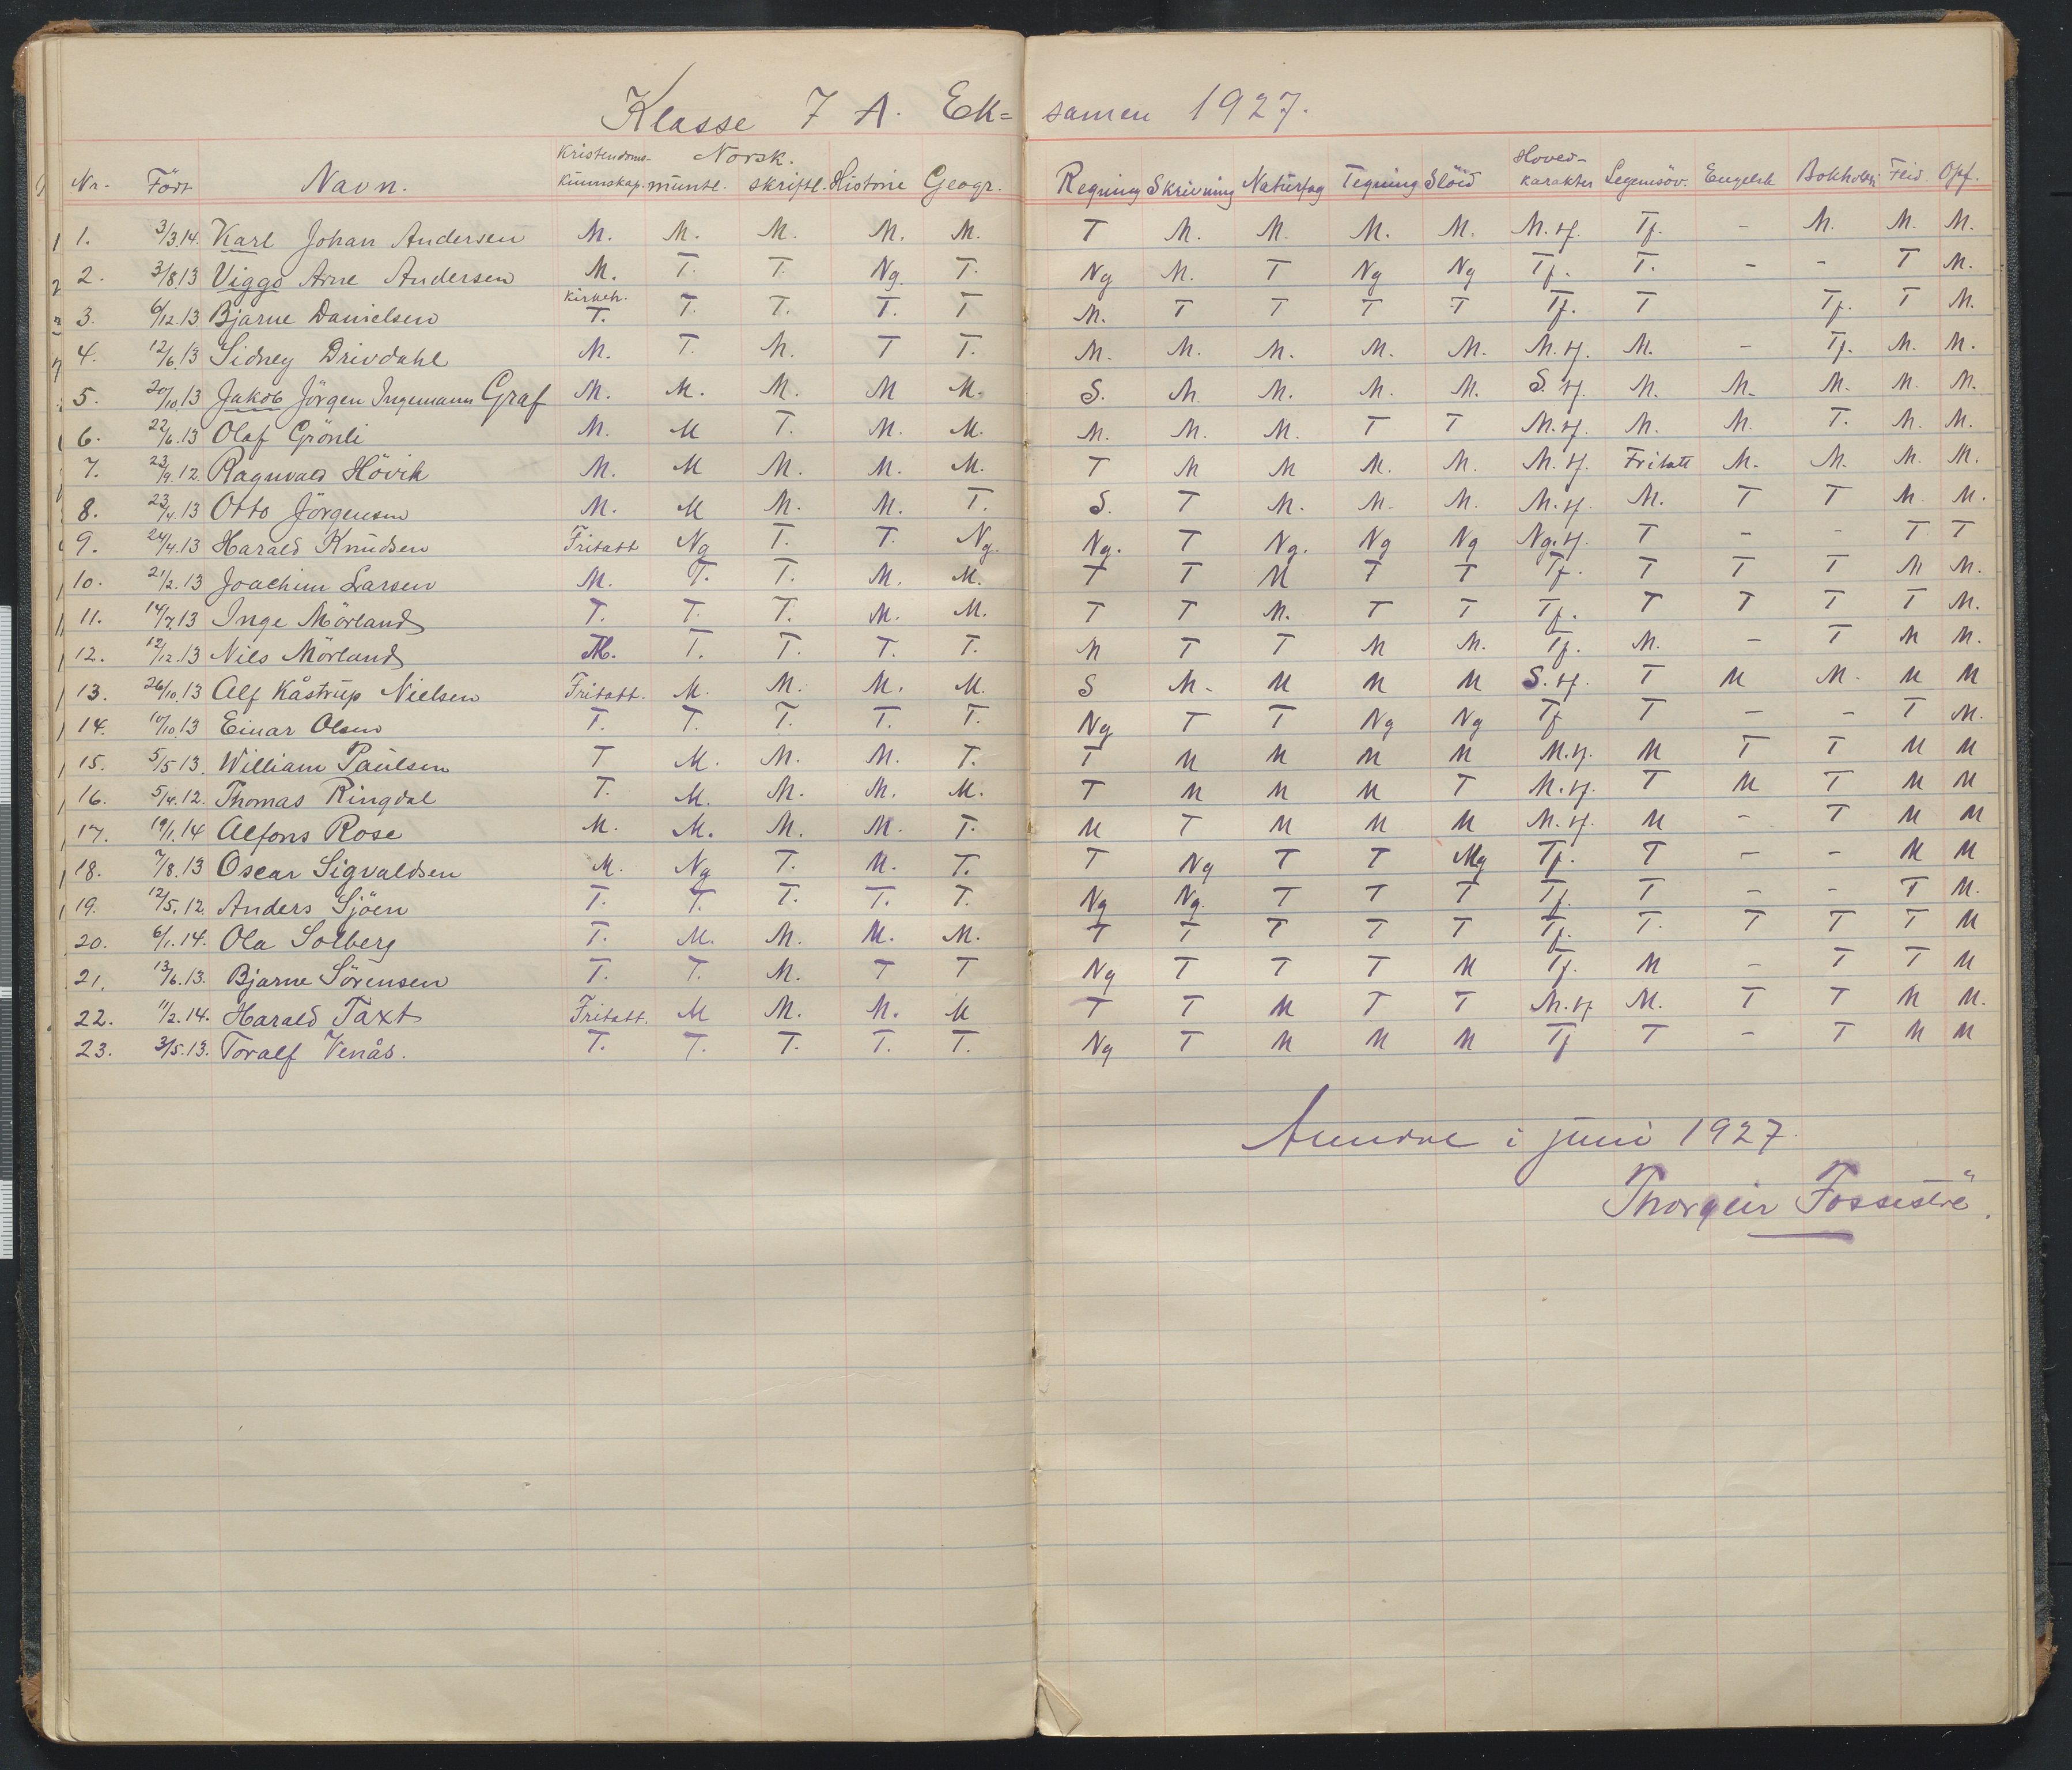 Klasse 7 A. Ek= samen 1927.
Kristendoms- Norsk. Hoved-
Nr. Födt Navn. Kunnskap. muntl. skriftl. Historie Geogr. Regning Skrivning Naturfag Tegning Slöid karakter Legemsöv. Engelsk Bokhold. Flid Opf.
1. 3/3.14. Karl Johan Andersen M. M. M. M. M. T M. M. M. M. M. tf. Tf. - M. M. M.
2. 3/8.13 Viggo Arne Andersen M. T. T. Ng. T. Ng M. T Ng Ng Tf. T. - - T M.
kirkeh.
3. 6/12.13 Bjarne Danielsen T. T. T. T. T M. T T T T Tf. T Tf. T M.
4. 12/6.13 Sidney Drivdahl M. T. M. T T. M. M. M. M. M. M. tf. M. - Tf. M. M.
5. 20/10.13 Jakob Jörgen Ingemann Graf M. M. M. M M. S. M. M. M. M. S. tf. M. M. M. M. M.
6. 22/6.13 Olaf Grönli M. M T. M. M. M. M. M. T T M. tf. M. M. T. M. M.
7. 23/9.12. Ragnvald Hövik M. M M. M. M. T M M M. M. M. tf. Fritatt M. M. M. M.
8. 23/4.13 Otto Jörgensen M. M M. M. T. S. T M. M. M. M. tf. M. T T M M.
9. 24/4.13 Harald Knudsen Fritatt Ng T. T. Ng. Ng. T Ng. Ng Ng Ng. tf. T - - T T
10. 21/2.13 Joachim Larsen M. T. T. M. M. T T M T T Tf. T T T M M.
11. 14/7.13 Inge Mörland T. T. T. M. M. T T M. T T Tf. T T T T M.
12. 12/12.13 Nils Mörland M. T. T. T. T. M T T M M. Tf. M. - T M M.
13. 26/10.13 Alf Kåstrup Nielsen Fritatt. M. M. M. M. S M. M M M S. tf. T M M. M M
14. 10/10.13 Einar Olsen T. T. T. T. T. Ng T T Ng Ng Tf T - - T M.
15. 5/5.13. William Paulsen T M. M. M. T. T M M M M M. tf. M T T M M
16. 5/4.12. Thomas Ringdal T. M. M. M. M. T M M M T M. tf. T M T M M
17. 19/1.14 Alfons Rose M. M. M. M. T. M T M M M M. tf. M - T M M
18. 7/8.13 Oscar Sigvaldsen M. Ng T. M. T. T Ng T T Mg Tf. T - - M M
19. 12/5.12. Anders Sjöen T. T. T. T. T. Ng Ng. T T T Tf. T - - T M.
20. 6/1.14. Ola Solberg T. M. M. M. M. T T T T T Tf. T. T T T M
21. 13/6.13. Bjarne Sörensen T. T. M. T T Ng T T T M Tf. M - T T M
22. 11/2.14. Harald Taxt Fritatt. M M. M. M T T M T T M. tf M. T T M M.
23. 3/5.13. Toralf Venås. T. T. T. T. T. Ng T M M M Tf T - T M M
Arendal i juni 1927.
Thorgeir Fossestöl.